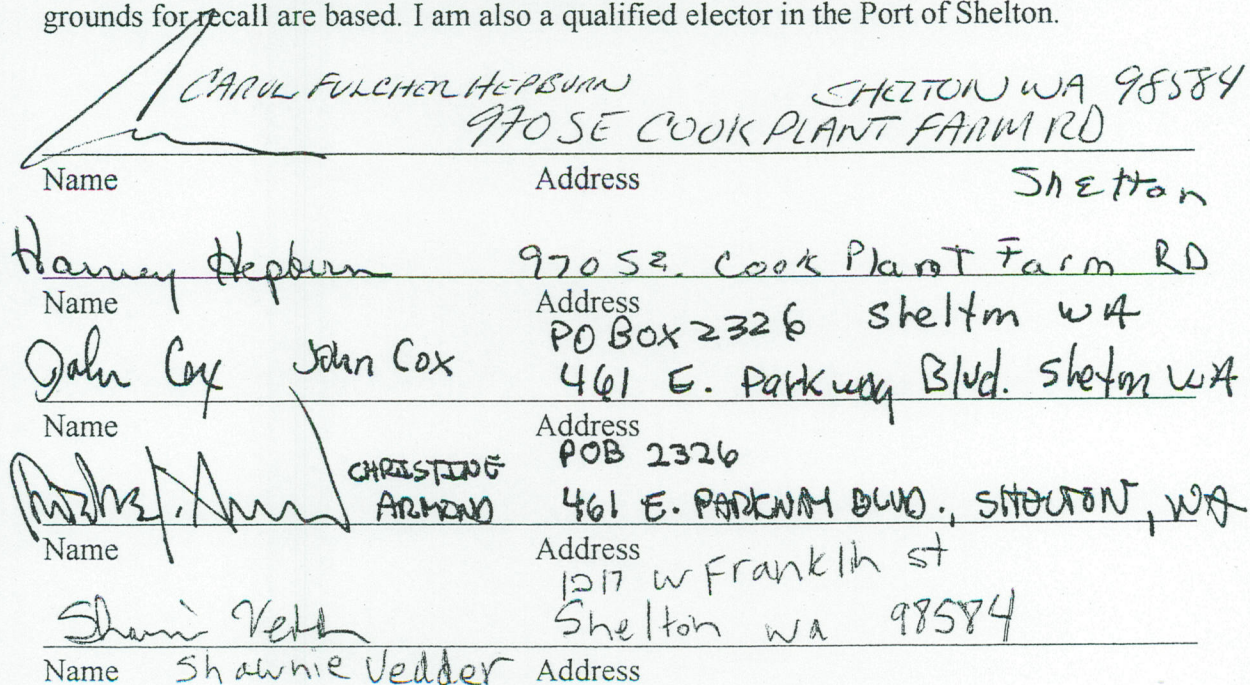 grounds for recall are based. I am also a qualified elector in the Port of Shelton.
CAROL FULCHER HEPBURN SHELTON WA 98584
970 SE COOK PLANT FARM RD
Name Address Shelton
Harvey Hepburn 970 SE. Cook Plant Farm RD
Name Address
PO BOX 2326 Shelton WA
John Cox John Cox 461 E. Parkway Blvd. Shelton WA
Name Address
POB 2326
CHRISTINE
ARMOND 461 E. PARKWAY BLVD., SHELTON, WA
Name Address
1217 W Franklin St
Shelton wa 98584
Name Shawnie Vedder Address